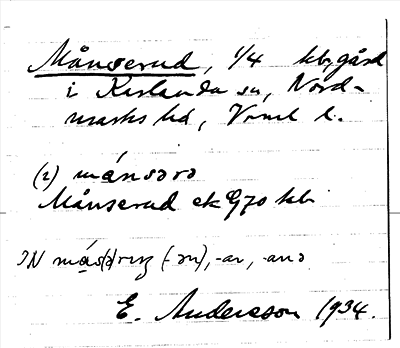 Månserud, 1/4 kbgård
i Karlanda sn, Nord-
marks hd, Vrml l.
(2) månsərə
Månserud ek G70 kbl
IN mås(ə)riŋ (-ən), -ar, -anə
E. Andersson 1934.